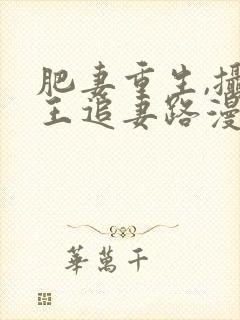 肥妻重生,攝
王追妻路漫
華萬千